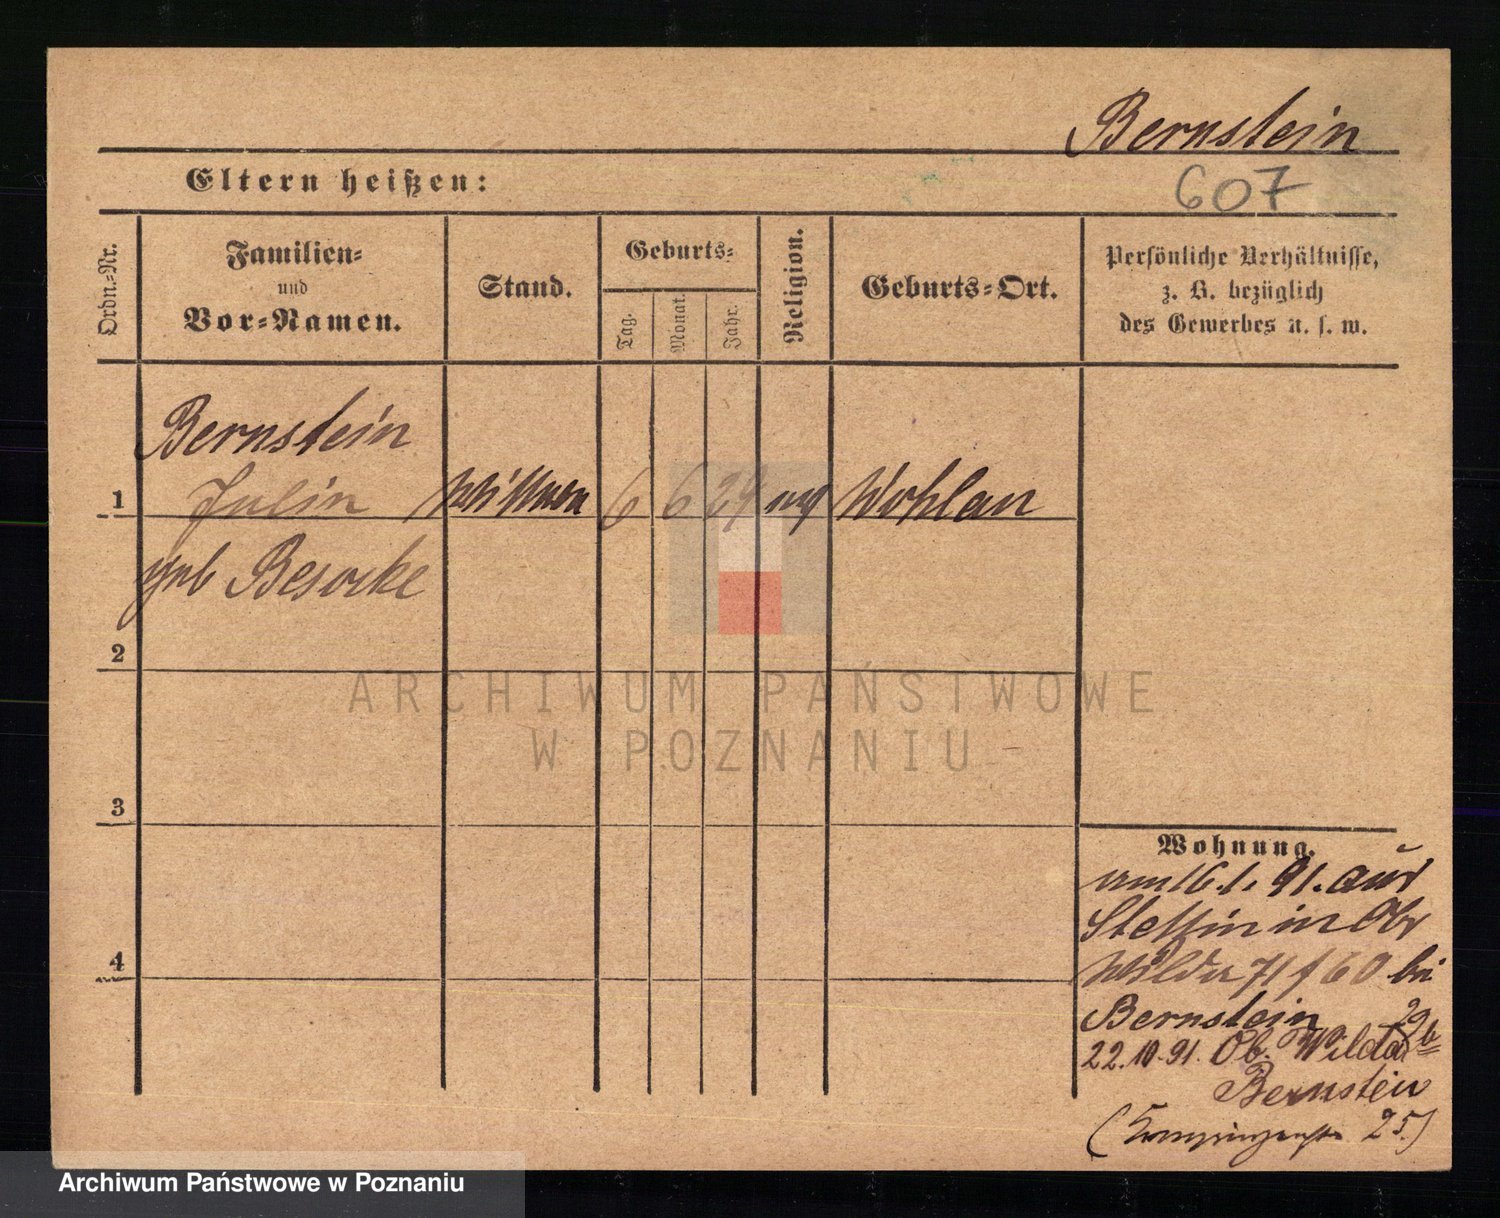 Bernstein
Eltern heißen:
607
Ordn.-Nr.
Familien-
und
Vor-Namen.
Stand.
Geburts-
Tag.
Monat.
Jahr.
Religion.
Geburts-Ort.
Persönliche Verhältnisse,
z. B. bezüglich
des Gewerbes u. s. w.
Bernstein
1 Julie Wittwe 6 6 24 Wohlau
geb Besocke
2
ARCHIWUM PAŃSTWOWE
W POZNANIU
3
Wohnung.
am 16.1.91. aus
Stettin in Ob
Wilda 71 f 60 bei
Bernstein
22.10.91. Ob. Wilda 29b
Bernstein
( 25.)
4
Archiwum Państwowe w Poznaniu